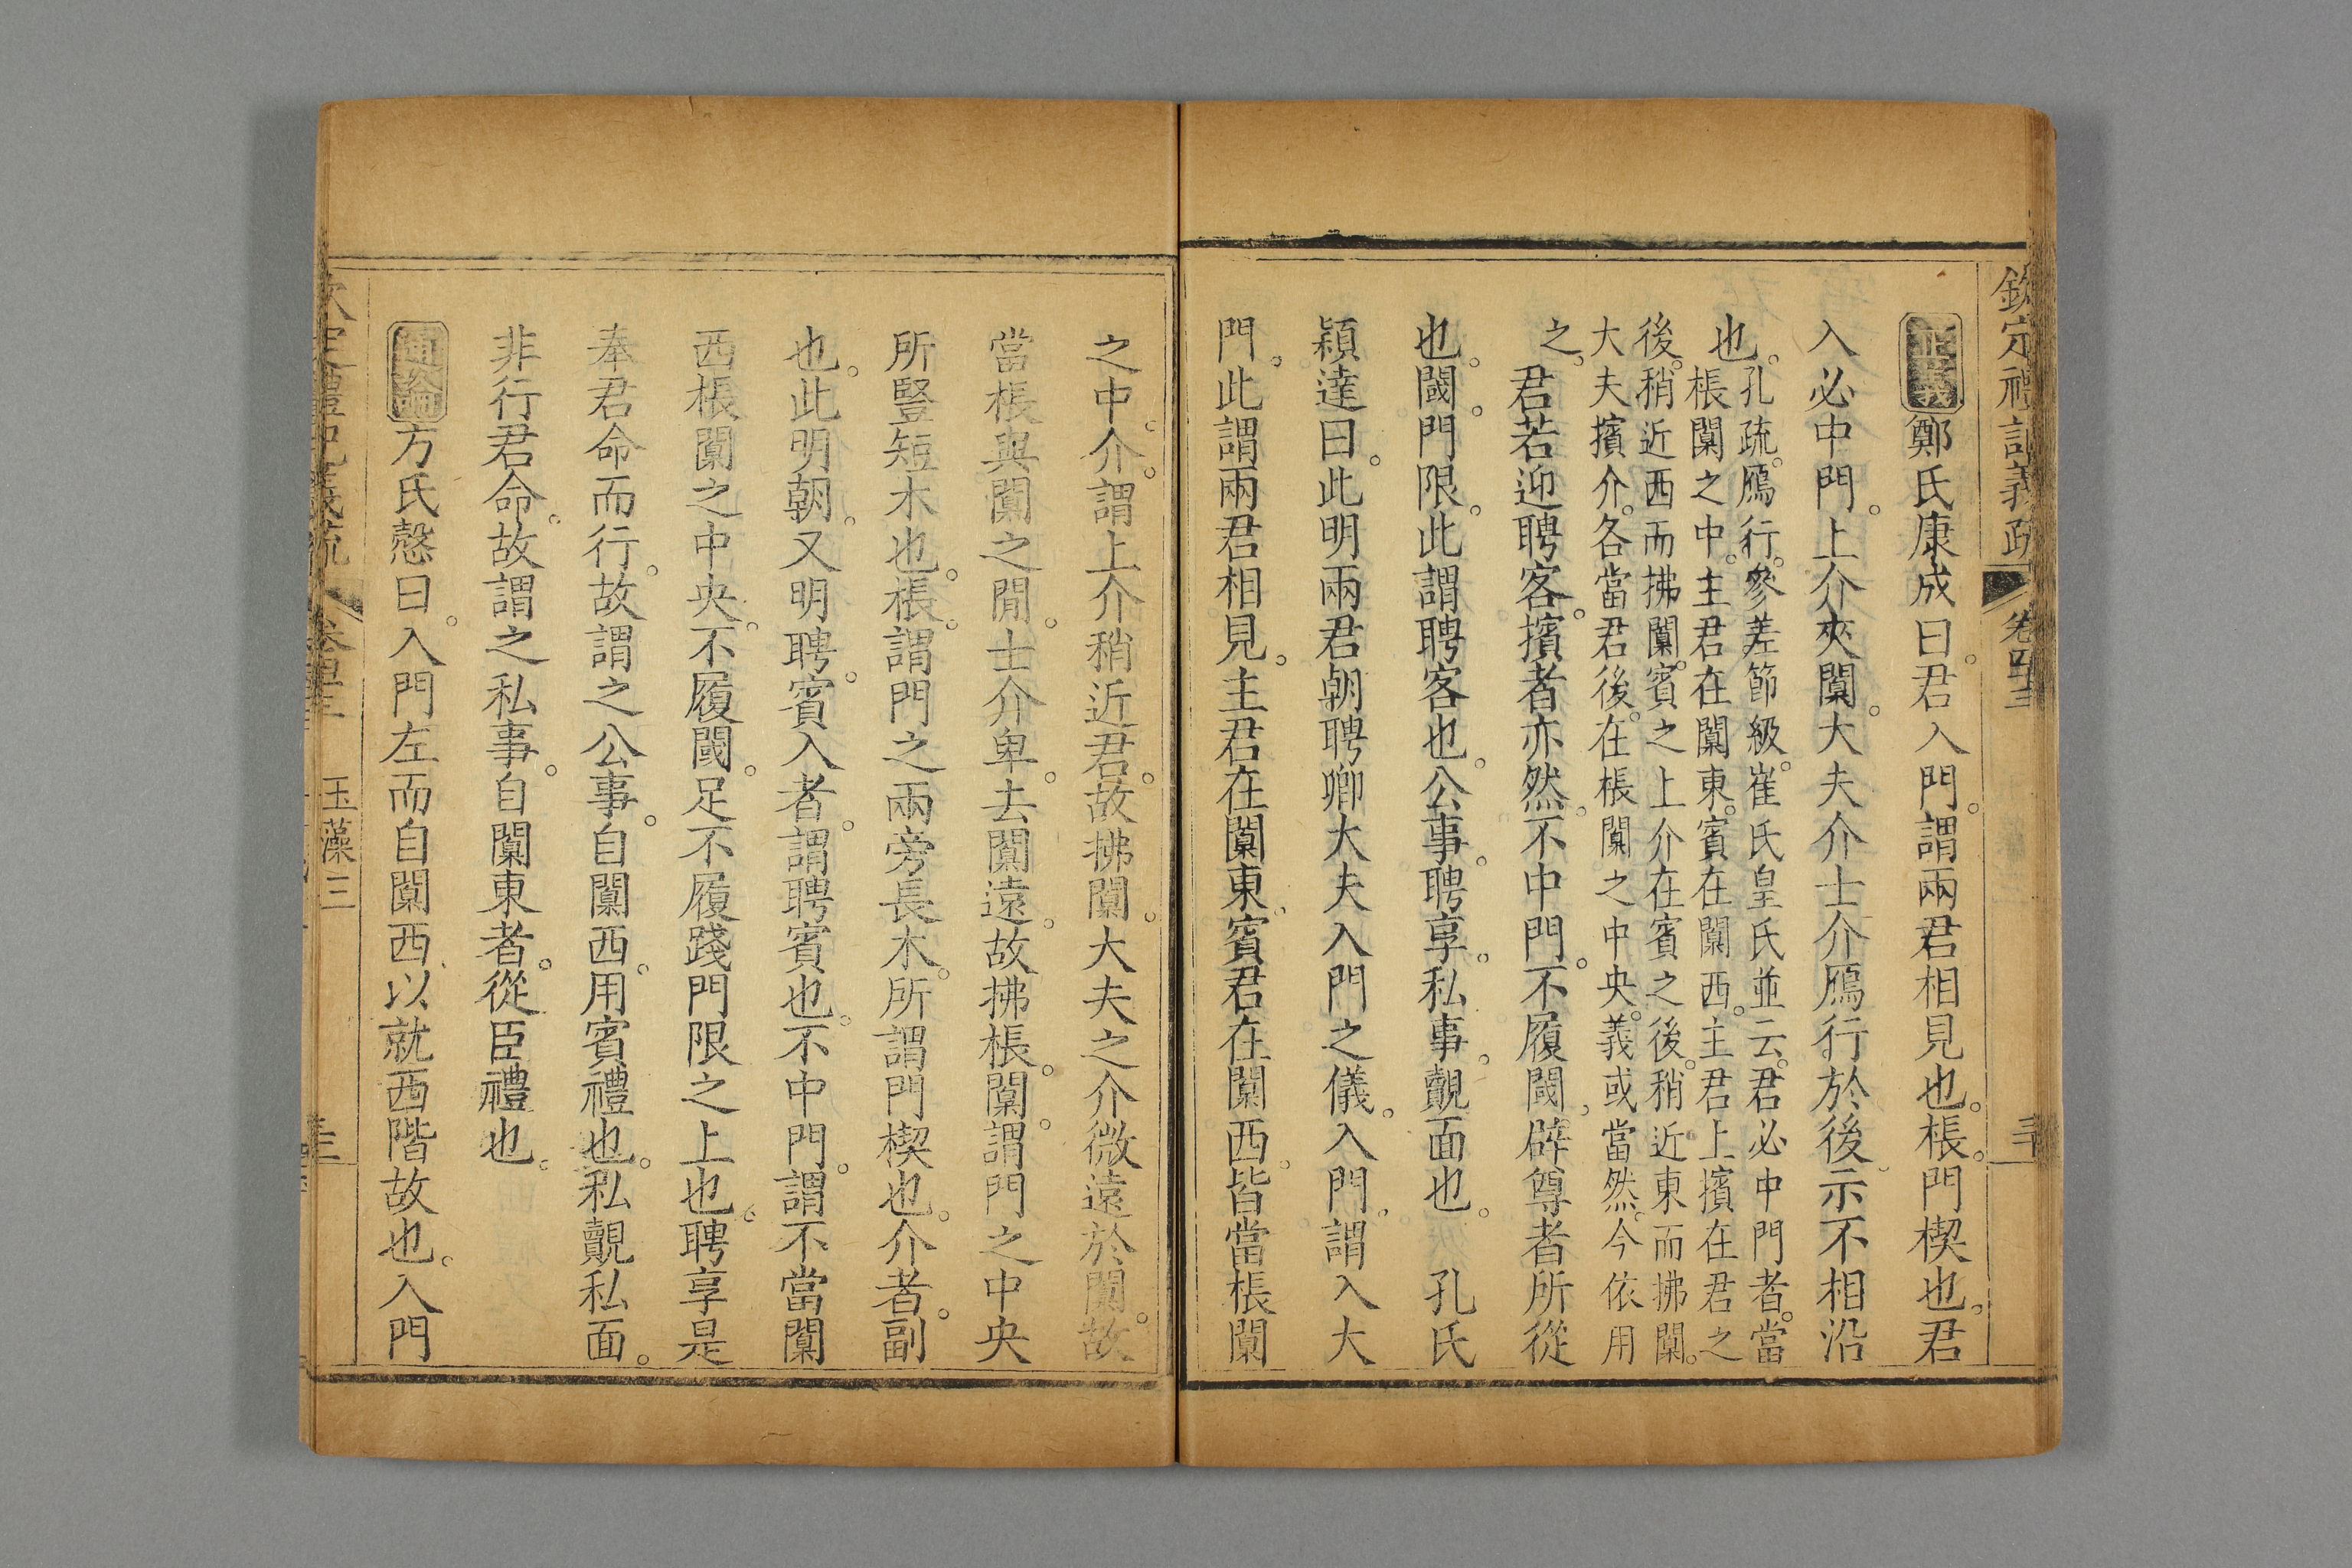 欽定禮記義疏 卷四十三 三十
正義鄭氏康成曰。君入門。謂兩君相見也。棖。門楔也。君
入必中門。上介夾闑。大夫介士介鴈行於後。示不相沿
也。孔疏。鴈行。參差節級。崔氏皇氏並云。君必中門者。當
棖闑之中。主君在闑東。賓在闑西。主君上擯在君之
後。稍近西而拂闑。賓之上介在賓之後。稍近東而拂闑。
大夫擯介。各當君後。在棖闑之中央。義或當然。今依用
之。君若迎聘客。擯者亦然。不中門。不履閾。辟尊者所從
也。閾。門限。此謂聘客也。公事。聘享。私事。覿面也。 孔氏
穎達曰。此明兩君朝聘卿大夫入門之儀。入門。謂入大
門。此謂兩君相見。主君在闑東。賓君在闑西。皆當棖闑
之中。介。謂上介稍近君。故拂闑。大夫之介微遠於闑。故
當棖與闑之閒。士介卑。去闑遠。故拂棖。闑。謂門之中央
所豎短木也。棖。謂門之兩旁長木。所謂門楔也。介者。副
也。此明朝。又明聘。賓入者。謂聘賓也。不中門。謂不當闑
西棖闑之中央。不履閾。足不履踐門限之上也。聘享是
奉君命而行。故謂之公事。自闑西。用賓禮也。私覿私面。
非行君命。故謂之私事。自闑東者。從臣禮也。
通論方氏慤曰。入門左而自闑西。以就西階故也。入門
定禮記義疏 卷四十三 玉藻三